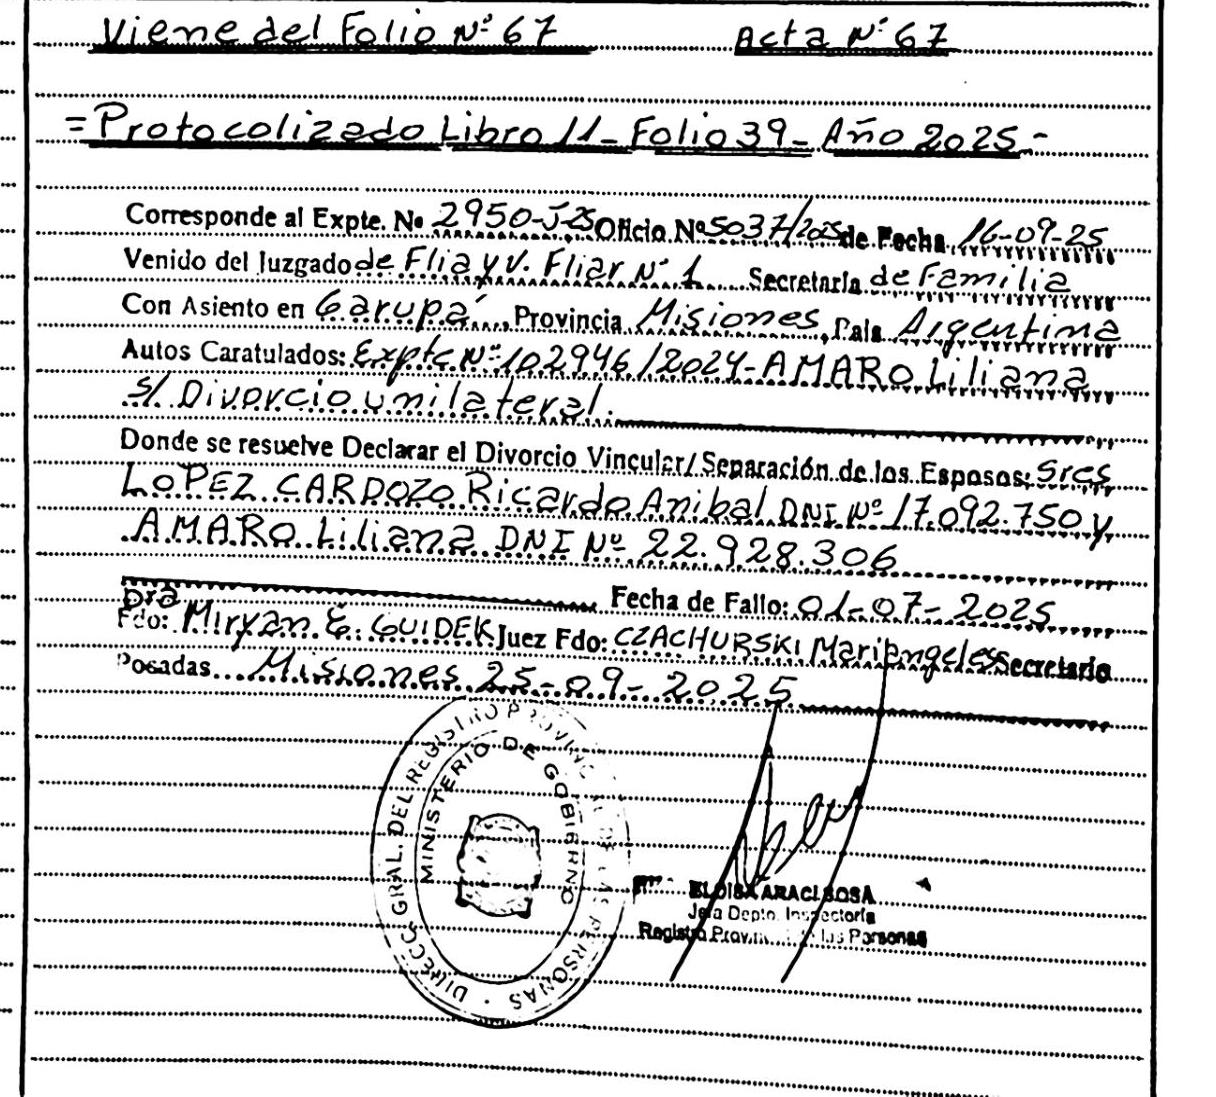 Viene del Folio Nº 67 Acta Nº 67
=Protocolizado Libro 11- Folio 39- Año 2025-
Corresponde al Expte. Nº 2950-J-25 Oficio Nº 5037/2025 de Fecha 16-09-25
Venido del Juzgado de Flia y V. Fliar Nº 1 Secretaría de Familia
Con Asiento en Garupá, Provincia Misiones, País Argentina
Autos Caratulados: Expte Nº 102946/2024-AMARO Liliana
s/ Divorcio unilateral.
Donde se resuelve Declarar el Divorcio Vincular/Separación de los Esposos: Sres
LOPEZ CARDOZO Ricardo Anibal DNI Nº 17.092.750 y
AMARO Liliana DNI Nº 22.928.306
Fecha de Fallo: 01-07-2025
Fdo: Dra Miryan E. GUIDEK Juez Fdo: CZACHURSKI Mariangeles Secretario
Posadas Misiones 25-09-2025
DIRECC. GRAL. DEL REGISTRO PROVINCIAL DE LAS PERSONAS
MINISTERIO DE GOBIERNO
ELOISA ARACI SOSA
Jefa Depto. Inspectoría
Registro Provincial de las Personas